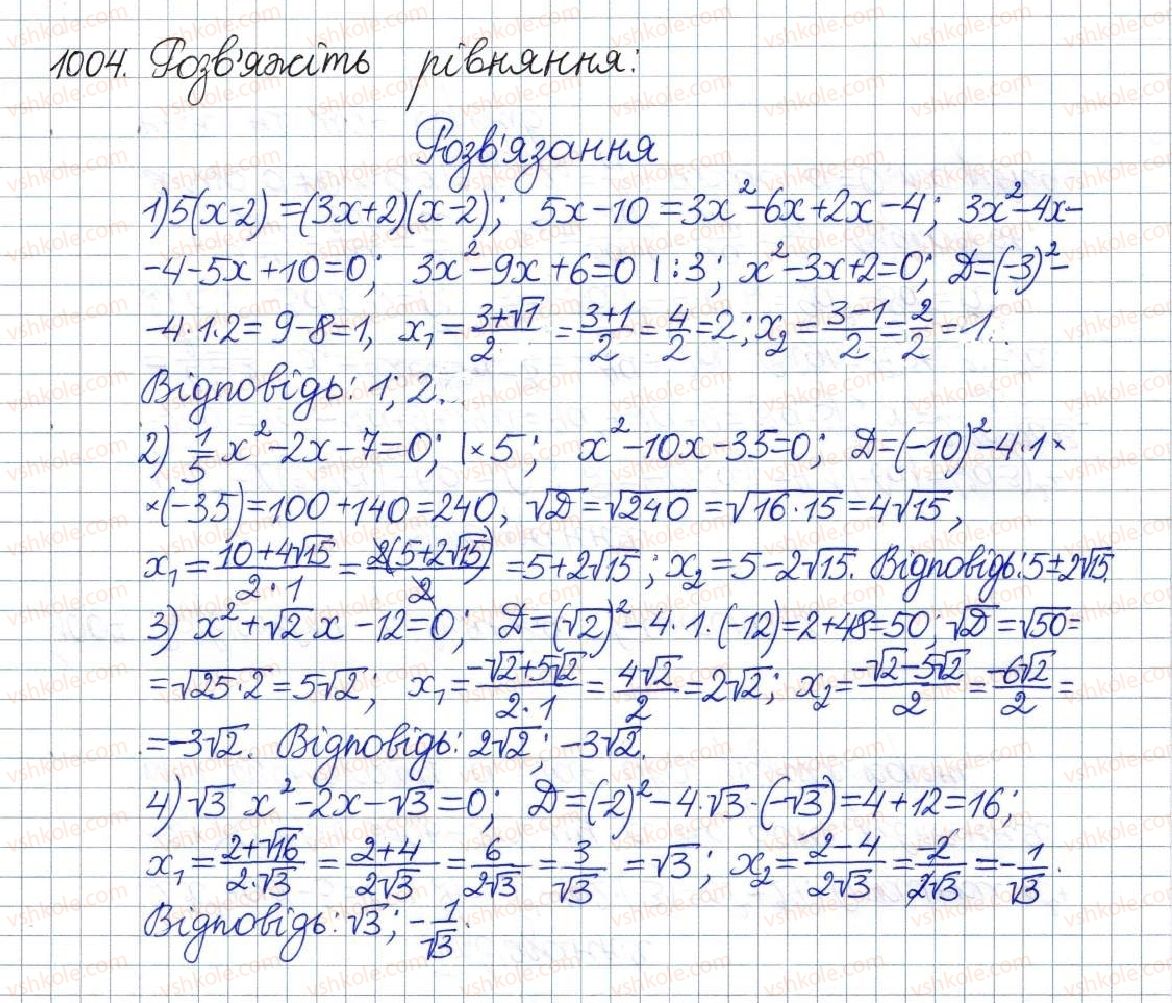 1004. Розв'яжіть рівняння:
Розв'язання
1) 5(x-2) =(3x+2)(x-2); 5x-10 =3x²-6x+2x-4; 3x²-4x-
-4-5x+10=0; 3x²-9x+6=0 |:3; x²-3x+2=0; D=(-3)²-
-4·1·2= 9-8=1, x₁ = (3+√1)/2 = (3+1)/2 = 4/2 =2; x₂ = (3-1)/2 = 2/2 =1.
Відповідь: 1; 2.
2) 1/5 x²-2x-7=0; |×5; x²-10x-35=0; D=(-10)²-4·1×
×(-35)=100+140=240, √D =√240 =√16·15 =4√15,
x₁ = (10+4√15)/(2·1) = 2(5+2√15)/2 =5+2√15; x₂ =5-2√15. Відповідь: 5±2√15.
3) x²+√2 x -12=0; D=(√2)²-4·1·(-12)=2+48=50; √D =√50=
=√25·2=5√2; x₁= (-√2+5√2)/(2·1) = 4√2/2 =2√2; x₂= (-√2-5√2)/2 = -6√2/2 =
=-3√2. Відповідь: 2√2; -3√2.
4) √3 x²-2x-√3=0; D=(-2)²-4·√3·(-√3)=4+12=16;
x₁ = (2+√16)/(2·√3) = (2+4)/(2√3) = 6/(2√3) = 3/√3 =√3; x₂= (2-4)/(2√3) = -2/(2√3) =-1/√3.
Відповідь: √3; -1/√3.